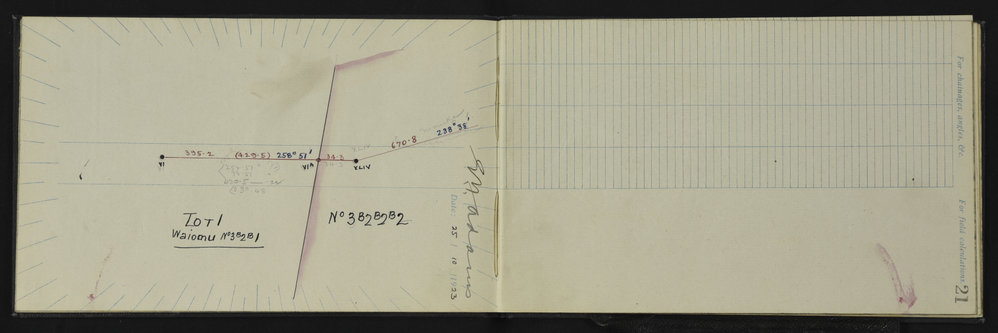 395.2
(429.5)
258° 51'
34.3
670.8
238° 58'
VI
VIA
XLIV
XLIV
LOT 1
Waiomu Nº3B2B1
Nº 3B2B2B2
Date: 25 / 10 /1923
For chainages, angles, &c.
For field calculations.
21